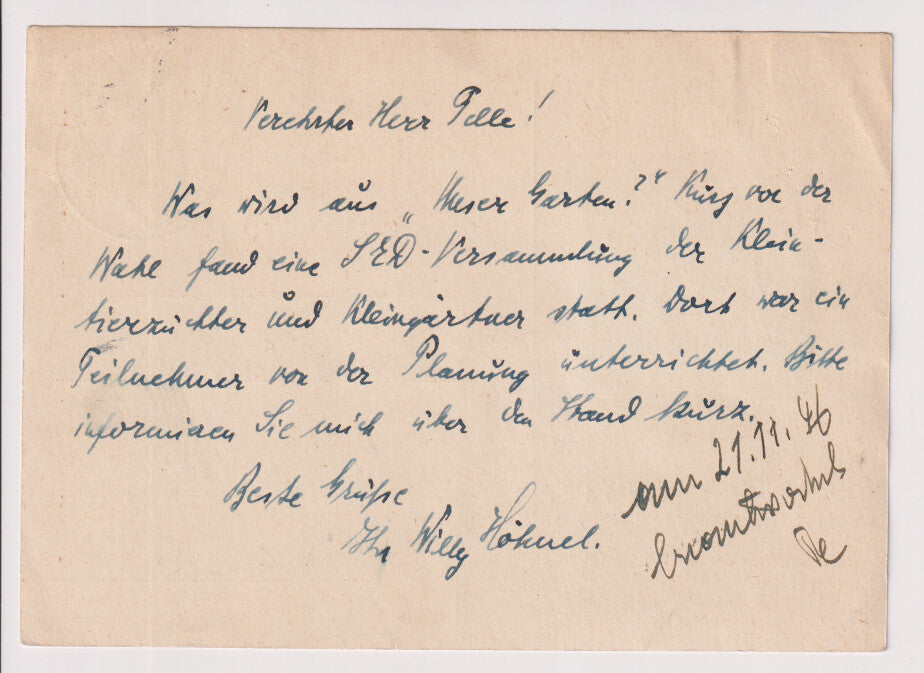 Verehrter Herr Pelle!
Was wird aus „Unser Garten?“ Kurz vor der
Wahl fand eine SED-Versammlung der Klein-
tierzüchter und Kleingärtner statt. Dort war ein
Teilnehmer von der Planung unterrichtet. Bitte
informieren Sie mich über den Stand kurz.
Beste Grüße
Ihr Willy Höhnel.
am 21.11.46
beantwortet
Pe